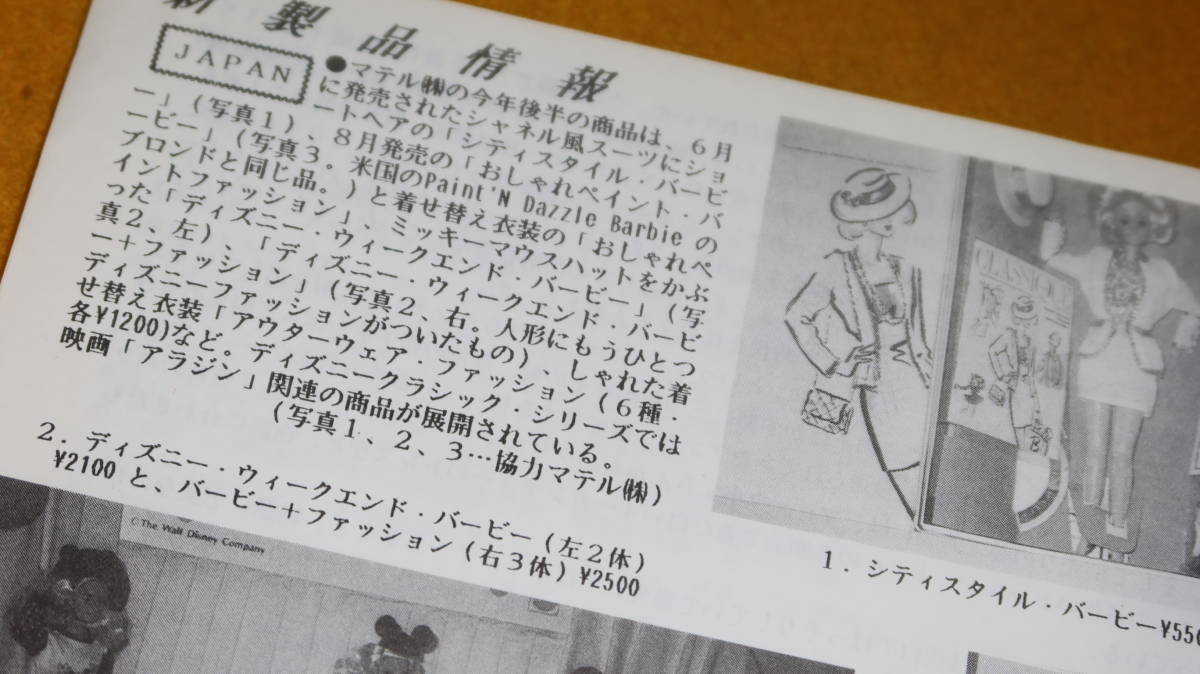 新製品情報
JAPAN
●マテル㈱の今年後半の商品は、6月
に発売されたシャネル風スーツにショ
ートヘアの「シティスタイル・バービ
ー」(写真1)、8月発売の「おしゃれペイント・バ
ービー」(写真3。米国のPaint'N Dazzle Barbie の
ブロンドと同じ品。)と着せ替え衣装の「おしゃれペ
イントファッション」、ミッキーマウスハットをかぶ
った「ディズニー・ウィークエンド・バービー」(写
真2、左)、「ディズニー・ウィークエンド・バービ
ー+ファッション」(写真2、右。人形にもうひとつ
ディズニーファッションがついたもの)、しゃれた着
せ替え衣装「アウターウェア・ファッション(6種・
各¥1200)など。ディズニークラシック・シリーズでは
映画「アラジン」関連の商品が展開されている。
(写真1、2、3…協力マテル㈱)
2. ディズニー・ウィークエンド・バービー(左2体)
¥2100 と、バービー+ファッション(右3体)¥2500
© The Walt Disney Company
1. シティスタイル・バービー¥550